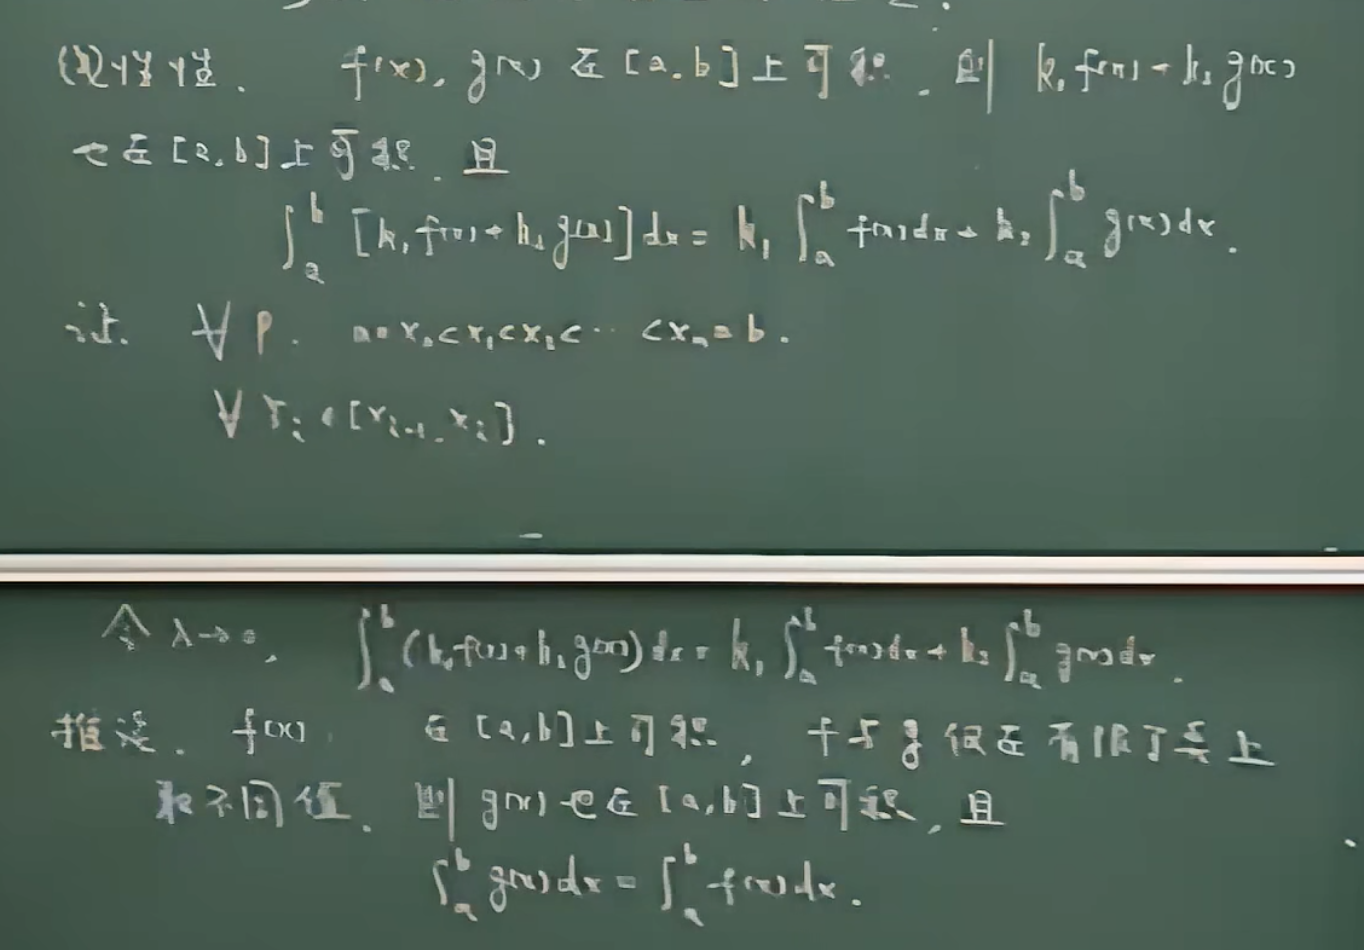 线性性. f(x), g(x) 在 [a, b] 上可积. 则 k₁f(x) + k₂g(x)
也在 [a, b] 上可积. 且
∫ₐᵇ [k₁f(x) + k₂g(x)]dx = k₁∫ₐᵇ f(x)dx + k₂∫ₐᵇ g(x)dx.
证. ∀ P. a = x₀ < x₁ < x₂ < ⋯ < xₙ = b.
∀ ξᵢ ∈ [xᵢ₋₁, xᵢ].
令 λ→0, ∫ₐᵇ (k₁f(x) + k₂g(x))dx = k₁∫ₐᵇ f(x)dx + k₂∫ₐᵇ g(x)dx.
推论. f(x) 在 [a, b] 上可积, f 与 g 仅在有限个点上
取不同值. 则 g(x) 也在 [a, b] 上可积, 且
∫ₐᵇ g(x)dx = ∫ₐᵇ f(x)dx.